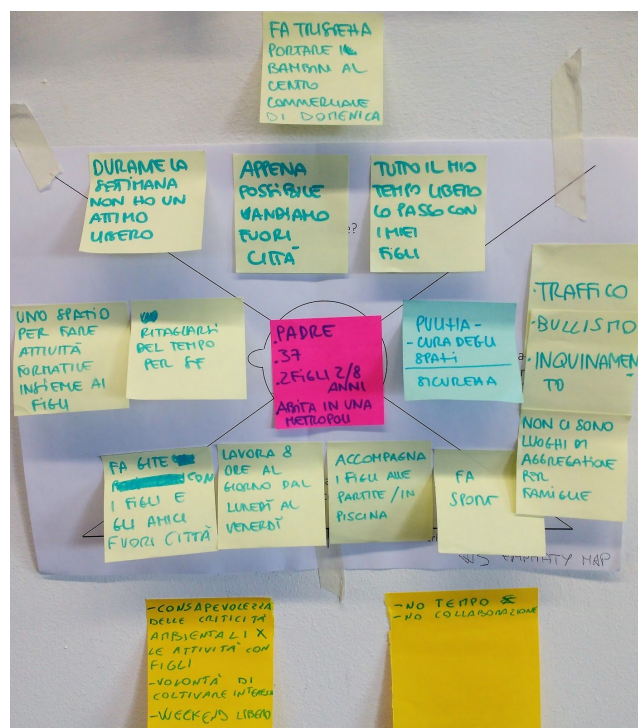 FA TRISTEZZA
PORTARE I
BAMBINI AL
CENTRO
COMMERCIALE
DI DOMENICA
DURANTE LA
SETTIMANA
NON HO UN
ATTIMO
LIBERO
APPENA
POSSIBILE
ANDIAMO
FUORI
CITTÀ
TUTTO IL MIO
TEMPO LIBERO
LO PASSO CON
I MIEI
FIGLI
e?
UNO SPAZIO
PER FARE
ATTIVITÀ
FORMATIVE
INSIEME AI
FIGLI
RITAGLIARSI
DEL TEMPO
PER SE
.PADRE
.37
.2 FIGLI 2/8
ANNI
ABITA IN UNA
METROPOLI
PULIZIA -
- CURA DEGLI
SPAZI
SICUREZZA
.TRAFFICO
.BULLISMO
.INQUINAMEN
TO
NON CI SONO
LUOGHI DI
AGGREGAZIONE
PER
FAMIGLIE
FA GITE
CON
I FIGLI E
GLI AMICI
FUORI CITTÀ
LAVORA 8
ORE AL
GIORNO DAL
LUNEDÌ AL
VENERDÌ
ACCOMPAGNA
I FIGLI ALLE
PARTITE / IN
PISCINA
FA
SPORT
EMPHATY MAP
-CONSAPEVOLEZZA
DELLE CRITICITÀ
AMBIENTALI X
LE ATTIVITÀ CON
FIGLI
-VOLONTÀ DI
COLTIVARE INTERESSI
-WEEKEND LIBERO
- NO TEMPO
- NO COLLABORAZIONE